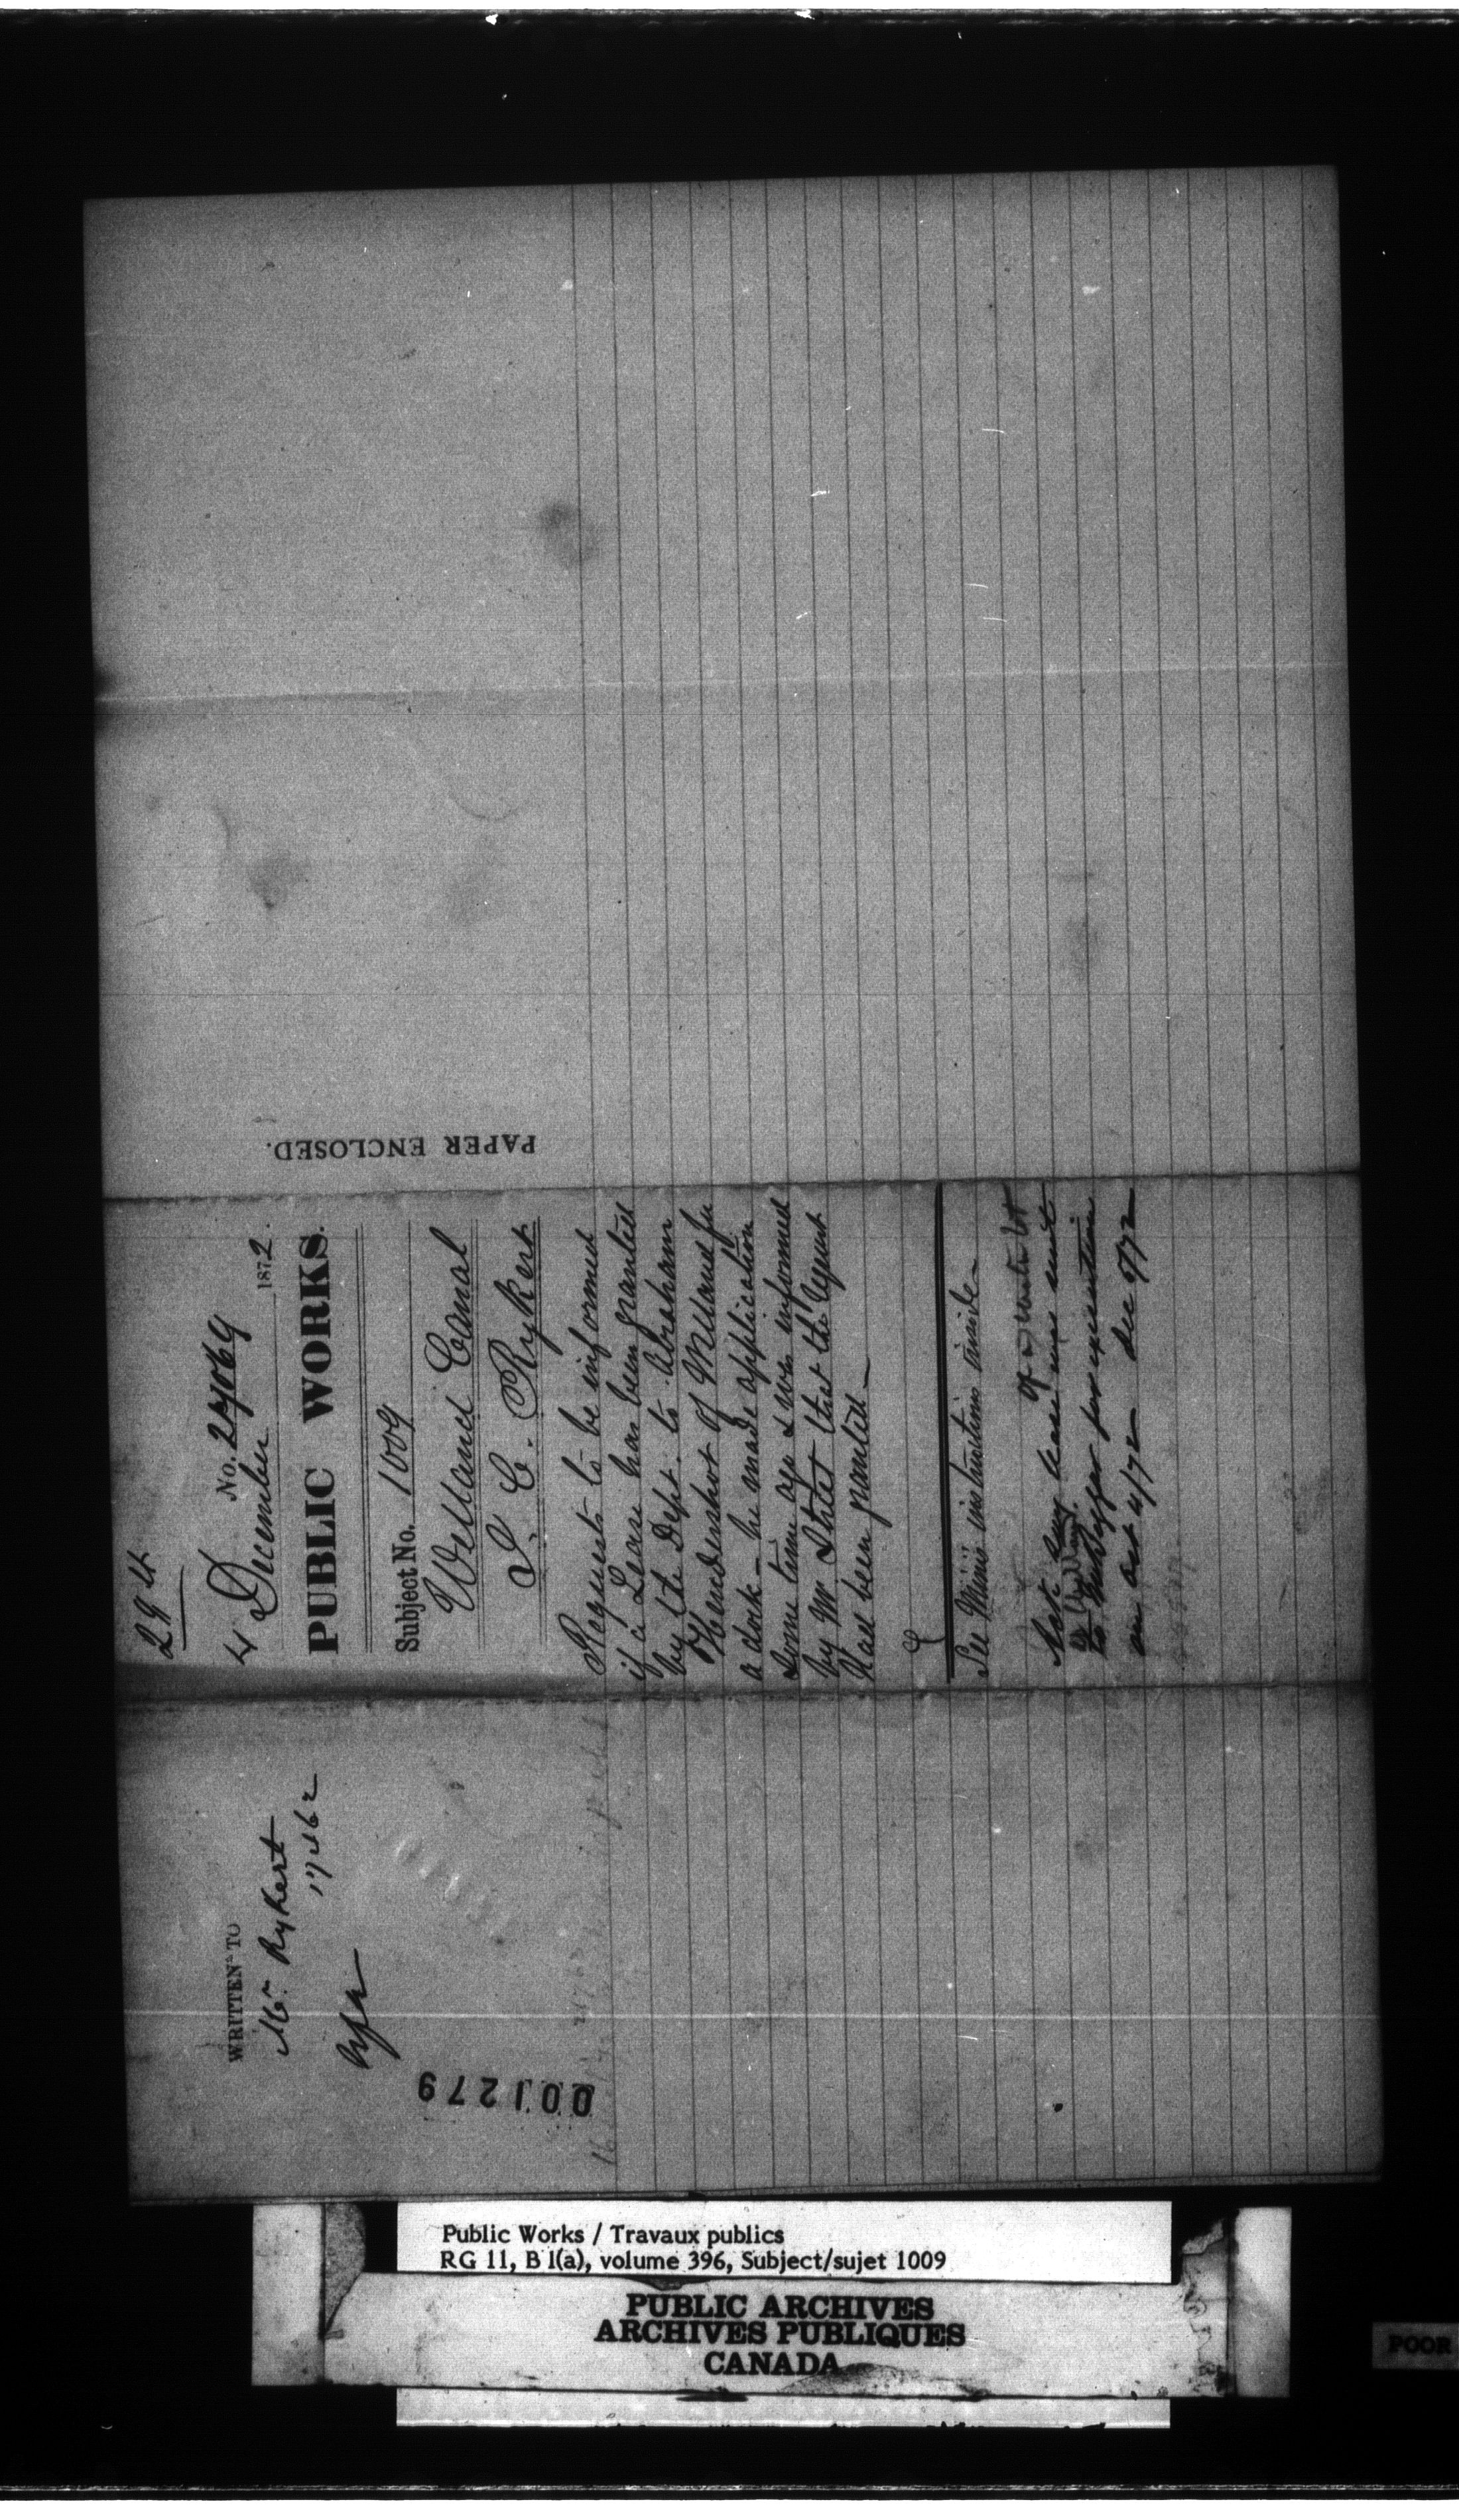 29
4 No. 27069
December 1872.
PUBLIC WORKS.
Subject No. 1009
Welland Canal
J. C. Rykert
Requests to be informed
if a Lease has been granted
by the Dept. to Abraham
Hendershot of Welland for
a dock - he made application
some time ago & was informed
by Mr. that the request
had been granted -
See Minis instructions inside -
of water lot
Note. lease was sent
to for execution
on Oct 4/72 - Dec 5/72
PAPER ENCLOSED.
WRITTEN TO
Mr. Rykert
17462
001279
Public Works / Travaux publics
RG 11, B 1(a), volume 396, Subject/sujet 1009
PUBLIC ARCHIVES
ARCHIVES PUBLIQUES
CANADA
POOR